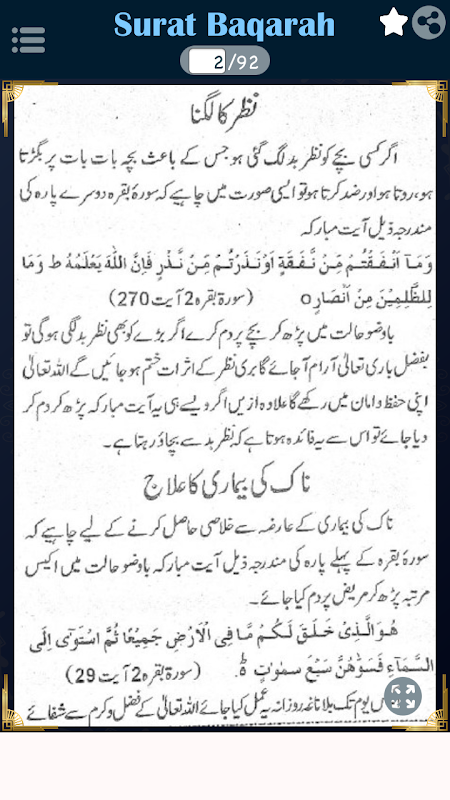 Surat Baqarah
2/92
نظر کا لگنا
اگر کسی بچے کو نظر بد لگ گئی ہو جس کے باعث بچہ بات بات پر بگڑتا
ہو، روتا ہو اور ضد کرتا ہو تو ایسی صورت میں چاہیے کہ سورۂ بقرہ دوسرے پارہ کی
مندرجہ ذیل آیت مبارکہ
وَمَآ اَنْفَقْتُمْ مِّنْ نَّفَقَةٍ اَوْنَذَرْتُمْ مِّنْ نَّذْرٍ فَاِنَّ اللّٰهَ يَعْلَمُهٗ ط وَمَا
لِلظّٰلِمِيْنَ مِنْ اَنْصَارٍ ○ (سورۃ بقرہ 2 آیت 270)
باوضو حالت میں پڑھ کر بچے پر دم کرے اگر بڑے کو بھی نظر بد لگی ہو گی تو
بفضل باری تعالیٰ آرام آ جائے گا بری نظر کے اثرات ختم ہو جائیں گے اللہ تعالیٰ
اپنی حفظ و امان میں رکھے گا علاوہ ازیں اگر ویسے ہی یہ آیت مبارکہ پڑھ کر دم کر
دیا جائے تو اس سے یہ فائدہ ہوتا ہے کہ نظر بد سے بچاؤ رہتا ہے۔
ناک کی بیماری کا علاج
ناک کی بیماری کے عارضہ سے خلاصی حاصل کرنے کے لیے چاہیے کہ
سورۂ بقرہ کے پہلے پارہ کی مندرجہ ذیل آیت مبارکہ باوضو حالت میں اکیس
مرتبہ پڑھ کر مریض پر دم کیا جائے۔
هُوَ الَّذِىْ خَلَقَ لَكُمْ مَّا فِى الْاَرْضِ جَمِيْعًا ثُمَّ اسْتَوٰى اِلَى
السَّمَآءِ فَسَوّٰهُنَّ سَبْعَ سَمٰوٰتٍ ط (سورۃ بقرہ 2 آیت 29)
یوم تک بلا ناغہ روزانہ یہ عمل کیا جائے اللہ تعالیٰ کے فضل و کرم سے شفائے